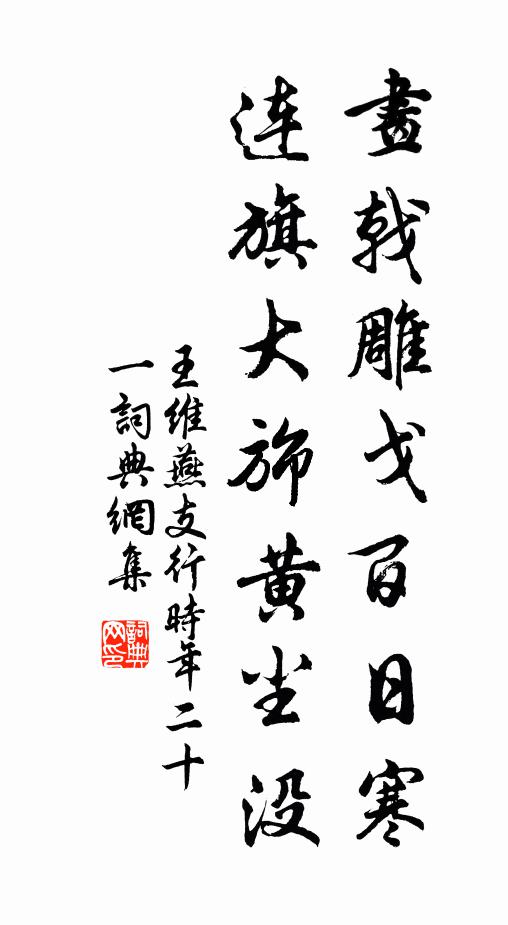 畫戟雕戈百日寒
連旗大旆黄尘没
王維燕支行時年二十
一詞典網集
詞典
网印